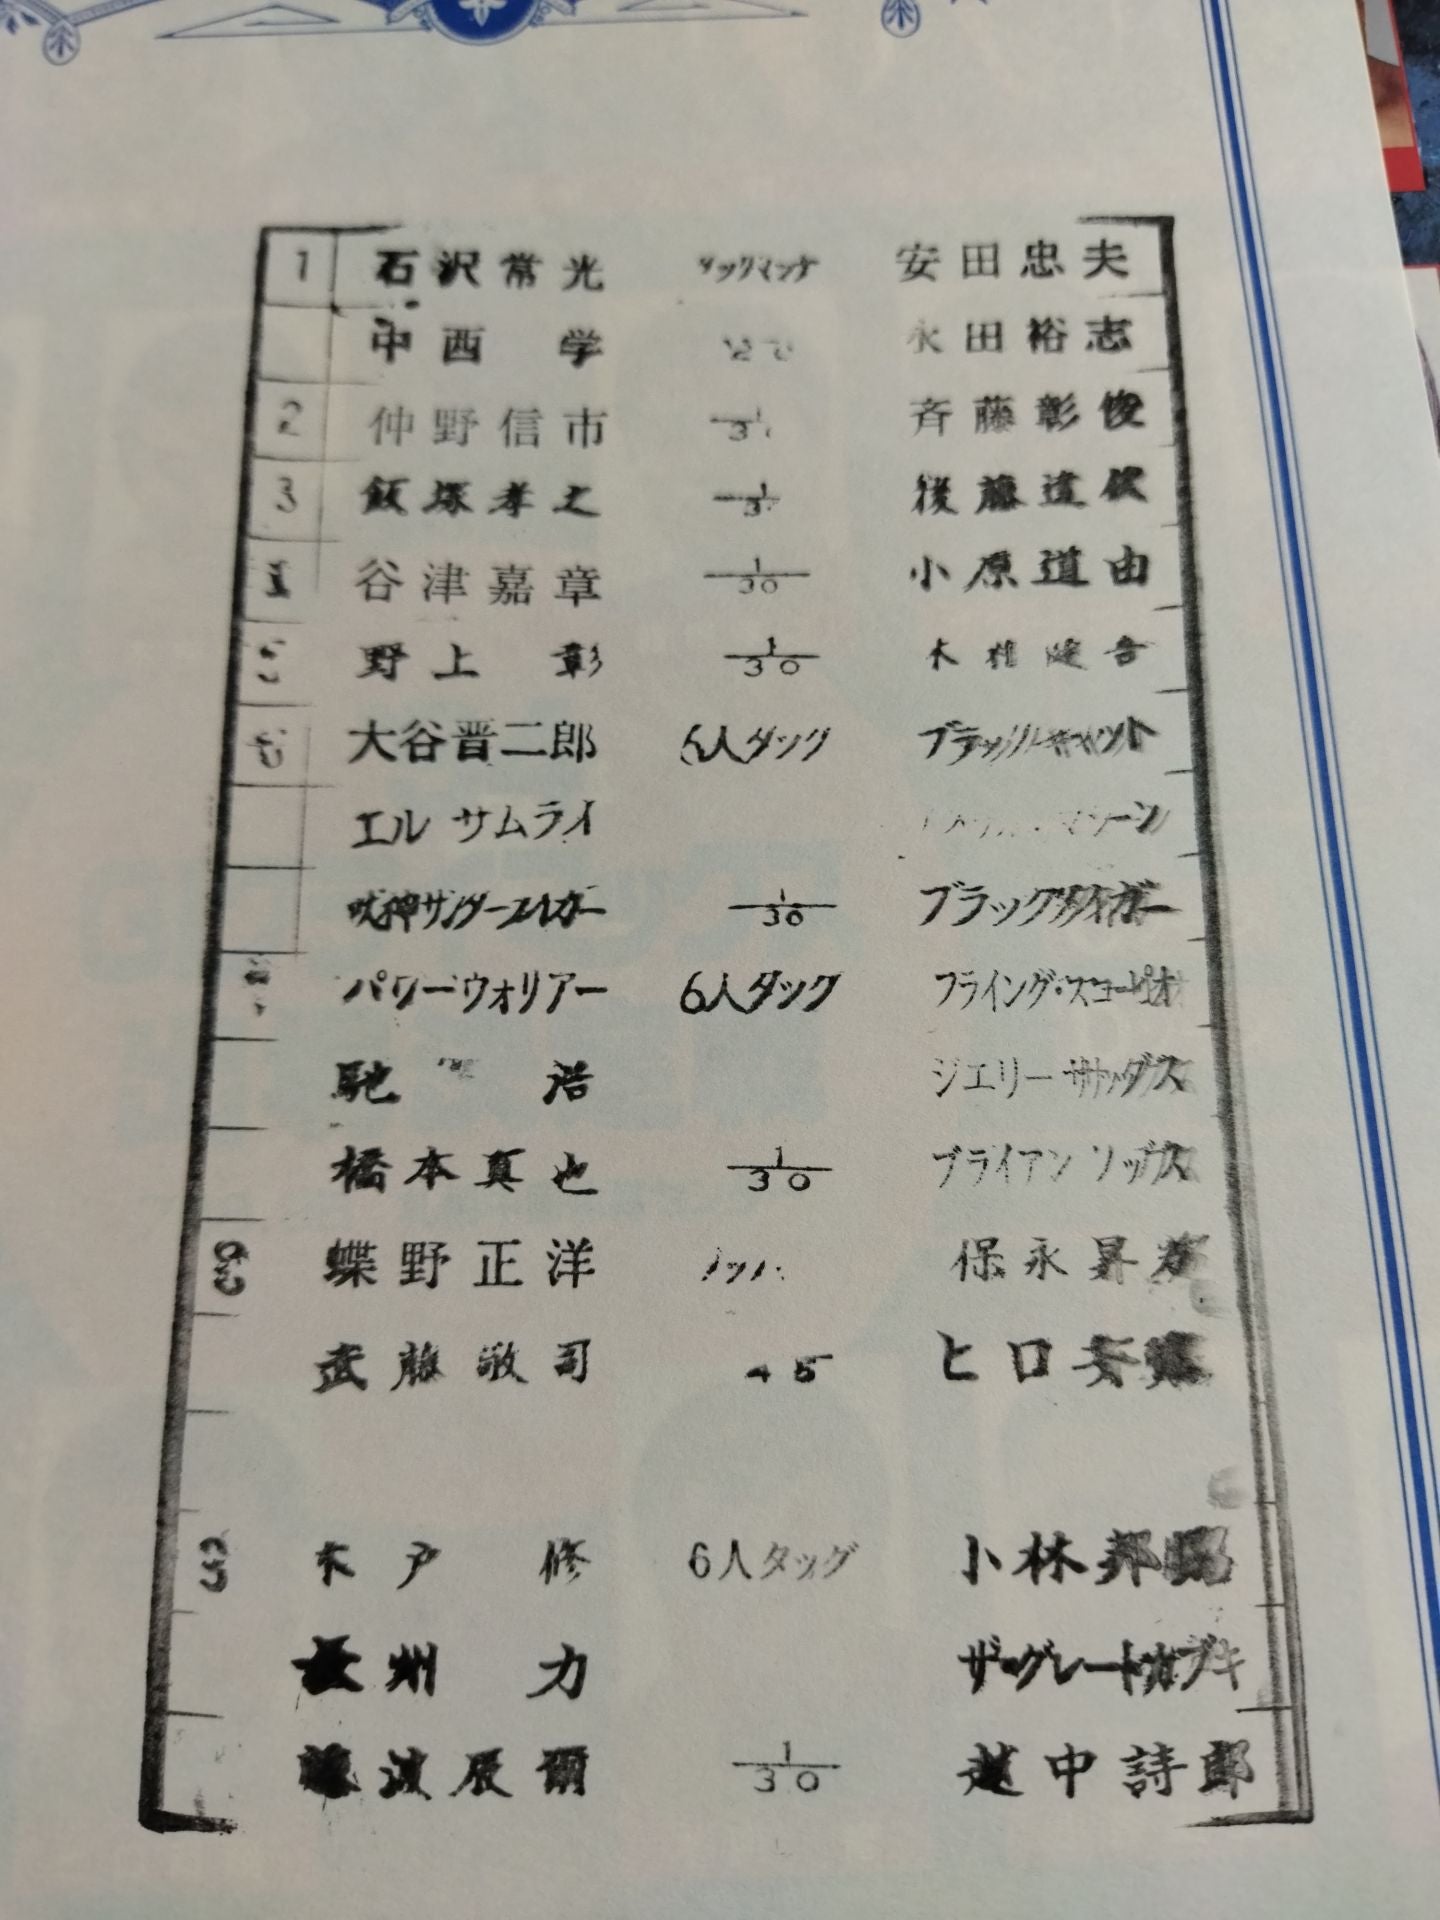 1 石沢常光 タッグマッチ 安田忠夫
中西学 永田裕志
2 仲野信市 斉藤彰俊
3 飯塚孝之 後藤達俊
谷津嘉章 1/30 小原道由
野上彰 1/30 木村健吾
大谷晋二郎 6人タッグ ブラックキャット
エルサムライ マシーン
獣神サンダーライガー 1/30 ブラックタイガー
パワーウォリアー 6人タッグ フライング・スコーピオ
馳浩 ジェリーサッグス
橋本真也 1/30 ブライアンノッブス
蝶野正洋 保永昇男
武藤敬司 45 ヒロ斉藤
木戸修 6人タッグ 小林邦昭
長州力 ザ・グレートカブキ
藤波辰爾 1/30 越中詩郎